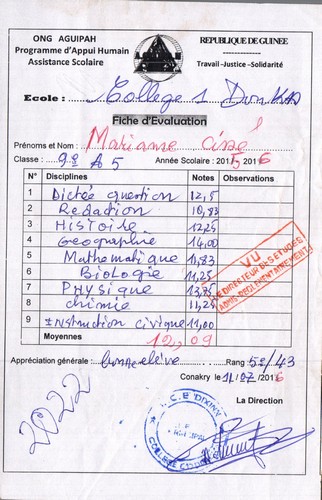 ONG AGUIPAH
REPUBLIQUE DE GUINEE
Programme d'Appui Humain
Assistance Scolaire
Travail -Justice -Solidarité
Ecole : College 1 Donka
Fiche d'Evaluation
Prénoms et Nom : Mariame Cissé
Classe : 9e A5 Année Scolaire : 2015 2016
N° Disciplines Notes Observations
1 Dictée question 12,5
2 Redaction 10,83
3 Histoire 12,25
4 Geographie 14,00
5 Mathematique 11,83
6 Biologie 11,25
7 Physique 13,25
8 chimie 11,25
9 Instruction civique 11,00
Moyenne 12,09
VU
LE DIRECTEUR DES ETUDES
ADMIS-REGLEMENTAIREMENT
Appréciation générale : bonne élève Rang 5e/43
Conakry le 11/07/2016
2022
La Direction